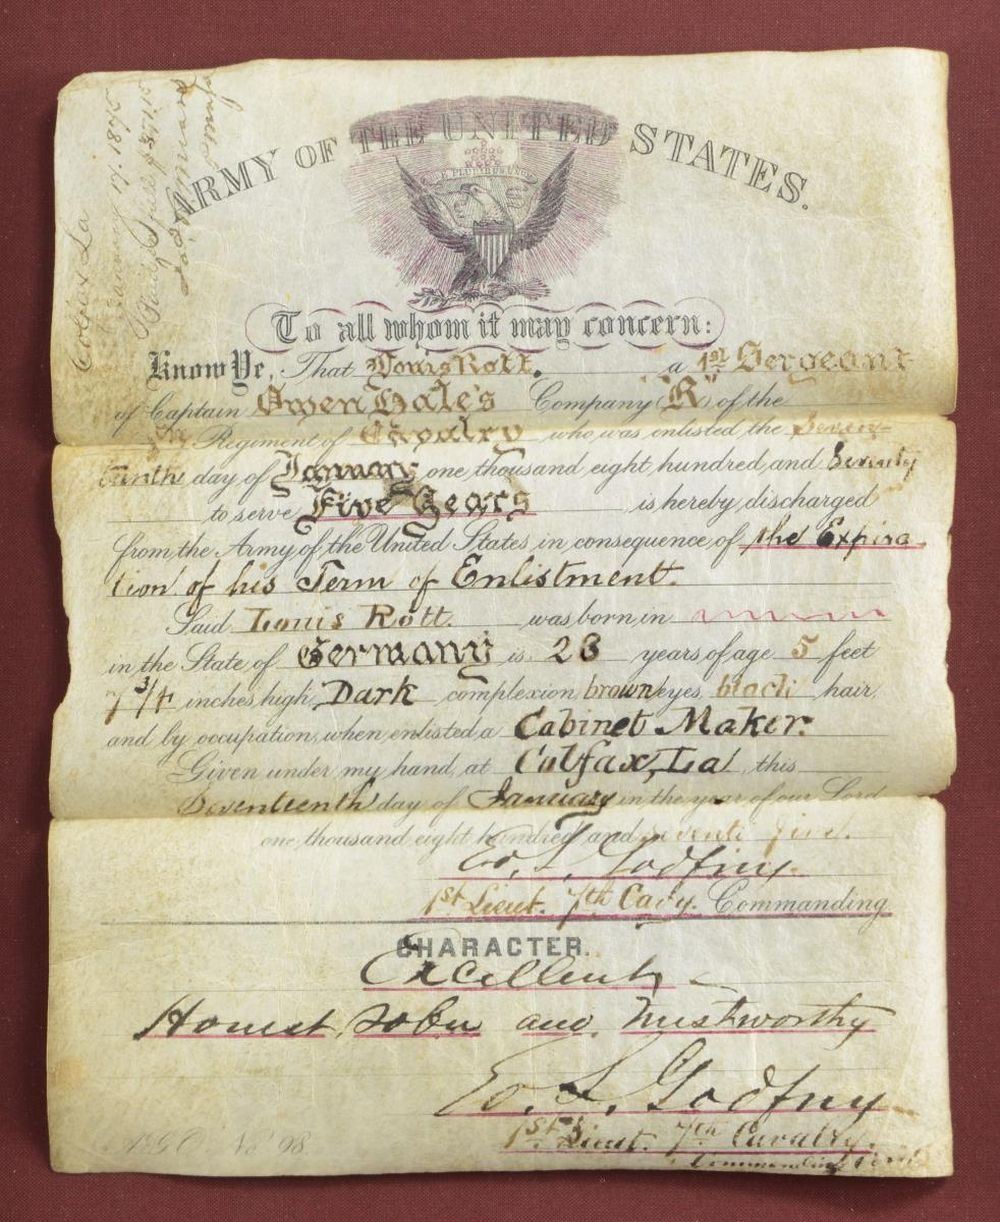 Colfax La
January 17. 1875
ARMY OF THE UNITED STATES.
E PLURIBUS UNUM
To all whom it may concern:
Know Ye, That Louis Rott. a 1st Sergeant
of Captain Owen Hale's Company (K) of the
Regiment of Cavalry who was enlisted the Seven-
teenth day of January one thousand eight hundred and Seventy
to serve Five Years is hereby discharged
from the Army of the United States in consequence of the Expira
tion of his Term of Enlistment.
Said Louis Rott. was born in
in the State of Germany is 28 years of age 5 feet
7 3/4 inches high, Dark complexion, brown eyes, black hair,
and by occupation, when enlisted a Cabinet Maker.
Given under my hand, at Colfax, La, this
Seventeenth day of January in the year of our Lord
one thousand eight hundred and seventy five.
E. S. Godfrey.
1st Lieut. 7th Cavy. Commanding
CHARACTER.
Excellent,
Honest, sober and Trustworthy
E. S. Godfrey
1st Lieut. 7th Cavalry.
Commanding
AGO No 98